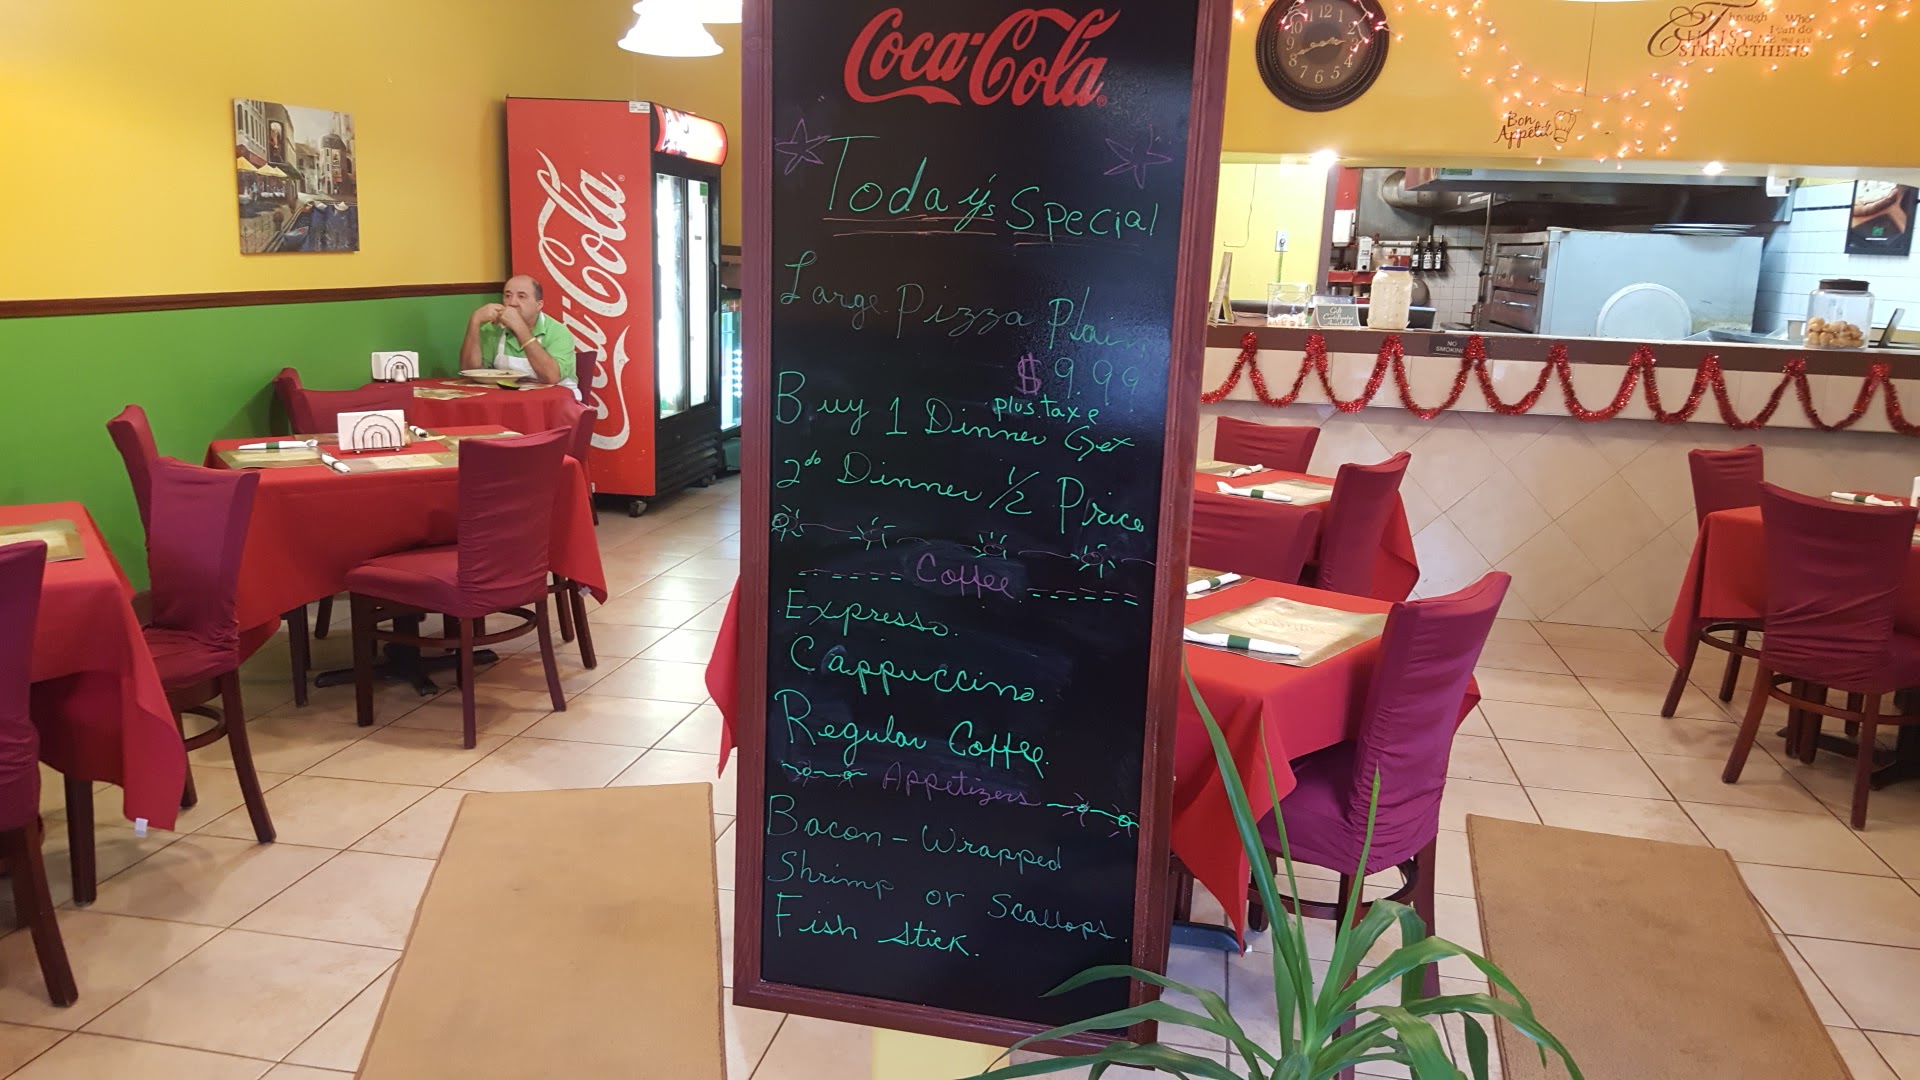 Coca-Cola
Today's Special
Large Pizza Plain
$9.99
plus taxe
Buy 1 Dinner Get
2do Dinner 1/2 Price
Coffee
Expresso.
Cappuccino.
Regular Coffee.
Appetizers
Bacon-Wrapped
Shrimp or Scallops.
Fish Stick.
Coca-Cola
Through
Who
I can do
CHRIST
STRENGTHENS
Bon
Appétit
12
1
2
3
4
5
6
7
8
9
10
11
NO
SMOKING